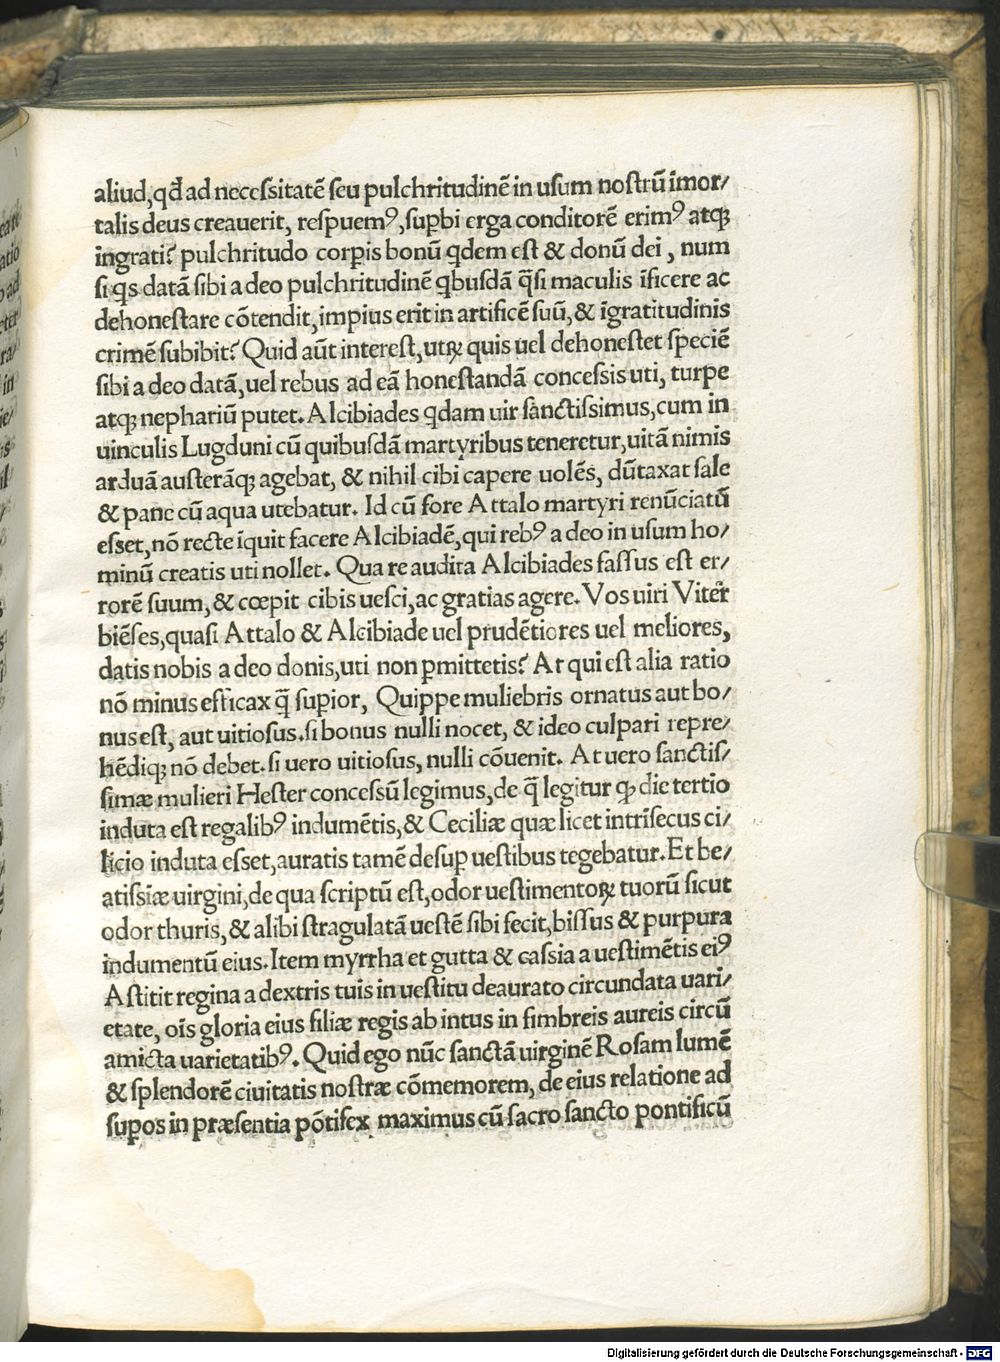 aliud,qđ ad necessitatē seu pulchritudinē in usum nostrū imor/
talis deus creauerit, respuemꝰ,suꝑbi erga conditorē erimꝰ atqꝫ
ingrati? pulchritudo corꝑis bonū qdem est & donū dei, num
si qs datā sibi a deo pulchritudinē qbusdā q̄si maculis īficere ac
dehonestare cōtendit,impius erit in artificē suū,& īgratitudinis
crimē subibit? Quid aūt interest,utꝝ quis uel dehonestet speciē
sibi a deo datā,uel rebus ad eā honestandā concessis uti, turpe
atqꝫ nephariū putet. Alcibiades qdam uir sanctissimus,cum in
uinculis Lugduni cū quibusdā martyribus teneretur,uitā nimis
arduā austerāqꝫ agebat, & nihil cibi capere uolēs, dūtaxat sale
& pane cū aqua utebatur. Id cū fore Attalo martyri renūciatū
esset,nō recte īquit facere Alcibiadē,qui rebꝰ a deo in usum ho/
minū creatis uti nollet. Qua re audita Alcibiades fassus est er/
rorē suum,& cœpit cibis uesci,ac gratias agere. Vos uiri Viter
biēses,quasi Attalo & Alcibiade uel prudētiores uel meliores,
datis nobis a deo donis,uti non ꝑmittetis? At qui est alia ratio
nō minus efficax q̄ suꝑior, Quippe muliebris ornatus aut bo/
nus est, aut uitiosus.si bonus nulli nocet, & ideo culpari repre/
hēdiqꝫ nō debet.si uero uitiosus, nulli cōuenit. At uero sanctis/
simæ mulieri Hester concessū legimus,de q̄ legitur ꝙ die tertio
induta est regalibꝰ indumētis,& Ceciliæ quæ licet intrīsecus ci/
licio induta esset,auratis tamē desuꝑ uestibus tegebatur.Et be/
atissiæ uirgini,de qua scriptū est,odor uestimentoꝝ tuorū sicut
odor thuris,& alibi stragulatā uestē sibi fecit,bissus & purpura
indumentū eius.Item myrrha et gutta & cassia a uestimētis eiꝰ
Astitit regina a dextris tuis in uestitu deaurato circundata uari/
etate, oīs gloria eius filiæ regis ab intus in fimbreis aureis circū
amicta uarietatibꝰ. Quid ego nūc sanctā uirginē Rosam lumē
& splendorē ciuitatis nostræ cōmemorem, de eius relatione ad
suꝑos in præsentia pōtifex maximus cū sacro sancto pontificū
Digitalisierung gefördert durch die Deutsche Forschungsgemeinschaft - DFG